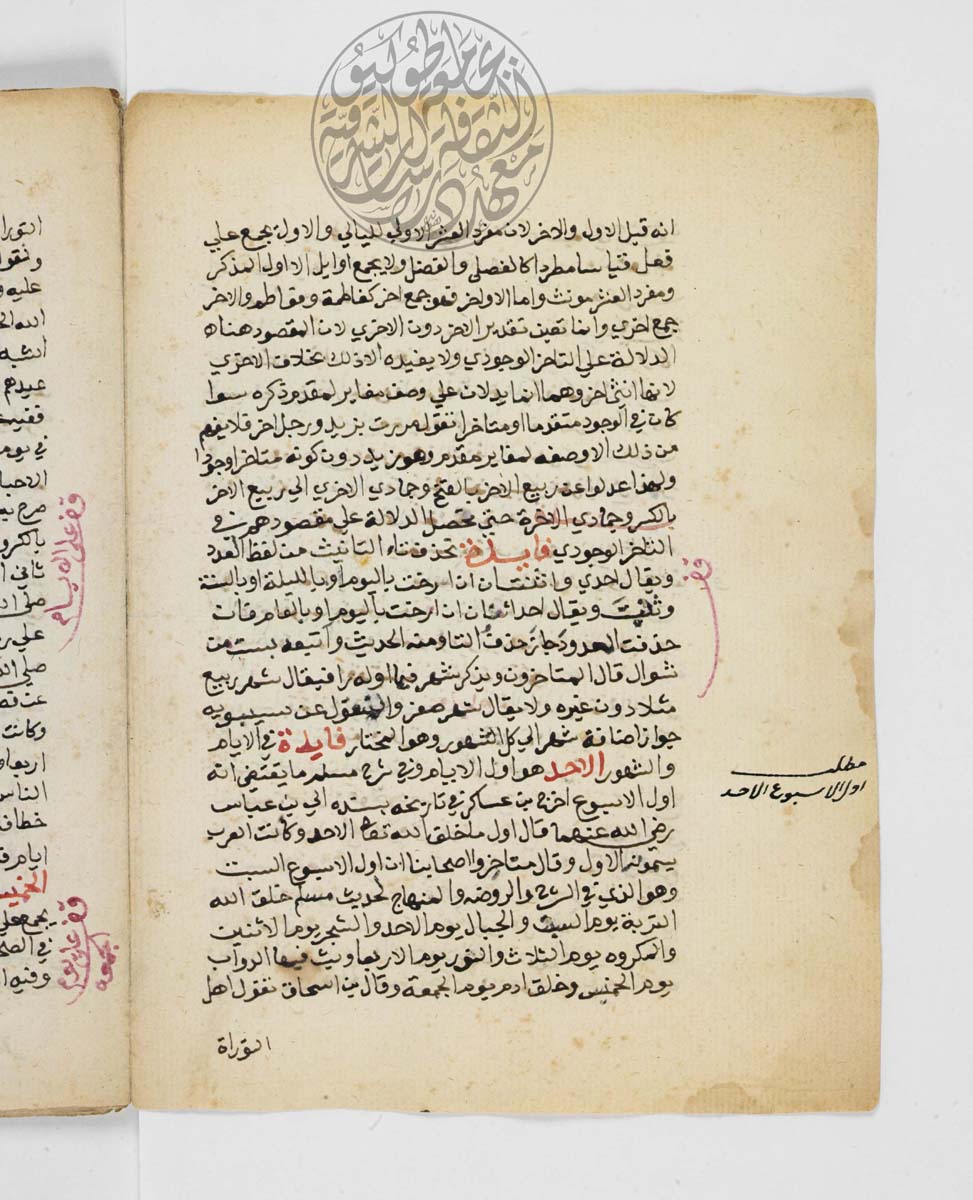 انه قيل الاول والاخر لان مفرد العشر الاولي لليالي والاولة يجمع علي
فعل قياسا مطردا كالفضلي والفضل ولا يجمع اوايل الا اول المذكر
ومفرد العشر مونث واما الاواخر فهو جمع اخر كفاطمة وفواطم والاخر
جمع اخري وانما تعين تقدير الاخر دون الاخري لان المقصود هناه
الدلالة علي التاخر الوجودي ولا يفيده الا ذلك بخلاف الاخري
لانها انثي اخر وهما انما يدلان علي وصف مغاير لمقدم ذكره سوا
كان في الوجود متقدما او متاخرا تقول مررت بزيد ورجل اخر فلا يفهم
من ذلك الا وصفه لمغاير مقدم وهو زيد دون كونه متاخرا وجودا
ولهذا عدلوا عن ربيع الاخر بالفتح وجمادي الاخري الي ربيع الاخر
بالكسر وجمادي الاخرة حتي تحصل الدلالة علي مقصودهم في
التاخر الوجودي فايدة تحذف تاء التانيث من لفظ العدد
ويقال احدي واثنتان ان ارخت باليوم او بالليلة او بالسنة
ويقال احد اثنان ان ارخت باليوم او بالعام فان
حذفت المعدود جاز حذف التا ومنه الحديث واتبعه بست من
شوال قال المتاخرون ويذكر شهر فيما اوله را فيقال شهر ربيع
مثلا دون غيره ولا يقال شهر صفر والمنقول عن سيبويه
جواز اضافة شهر الي كل الشهور وهو المختار فايدة في الايام
والشهور الاحد هو اول الايام وفي شرح مسلم ما يقتضي انه
اول الاسبوع اخرج بن عساكر في تاريخه بسنده الي بن عباس
رضي الله عنهما قال اول ما خلق الله تعا الاحد وكانت العرب
يسمونه الاول وقال متاخروا اصحابنا ان اول الاسبوع السبت
وهو الذي في الشرح والروضه والمنهاج لحديث مسلم خلق الله
التربة يوم السبت والجبال يوم الاحد والشجر يوم الاثنين
والمكروه يوم الثلاث والنور يوم الاربعا وبث فيها الدواب
يوم الخميس وخلق ادم يوم الجمعة وقال بن اسحاق يقول اهل
التوراة
قف
مطلب
اول الاسبوع الاحد
قف علي الايام
قف علي يوم
الجمعه